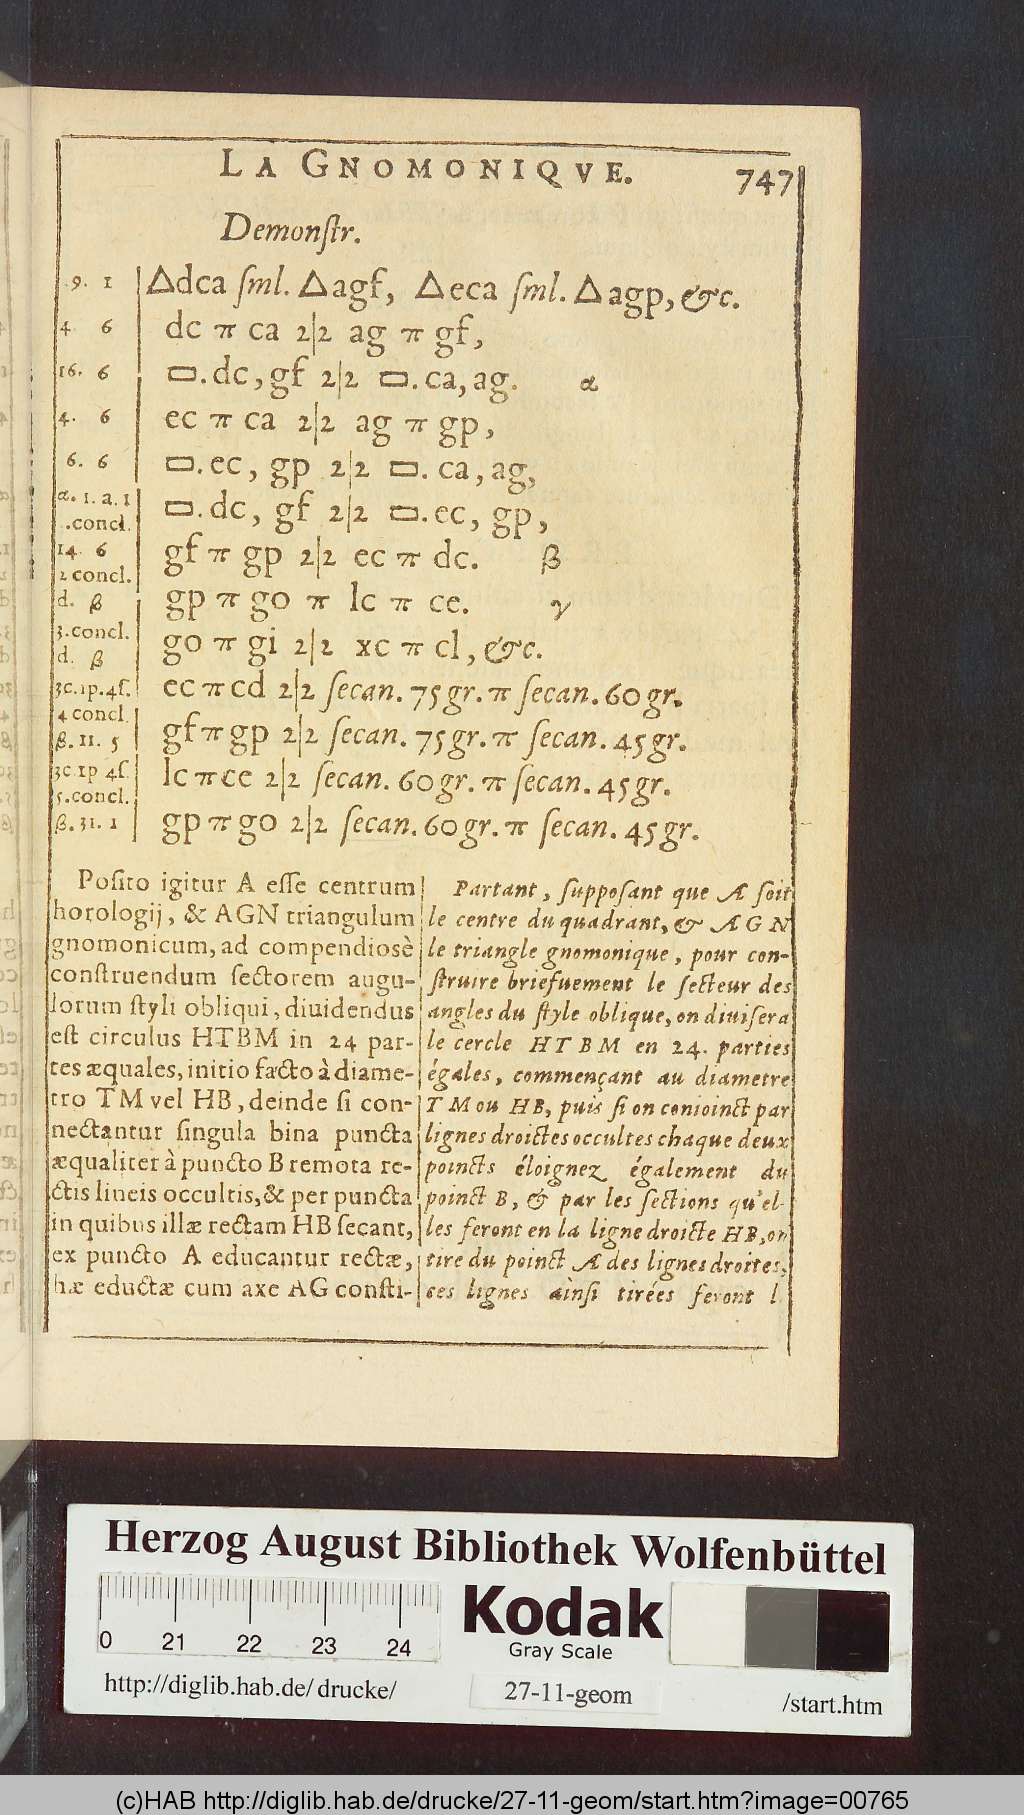 LA GNOMONIQVE.
747
Demonſtr.
.9. 1 △dca ſml. △agf, △eca ſml. △agp, &c.
4. 6 dc π ca 2|2 ag π gf,
16. 6 ▭.dc, gf 2|2 ▭.ca, ag. α
4. 6 ec π ca 2|2 ag π gp,
6. 6 ▭.ec, gp 2|2 ▭.ca, ag,
α. 1. a. 1
.concl. ▭.dc, gf 2|2 ▭.ec, gp,
14. 6 gf π gp 2|2 ec π dc. β
2 concl.
d. β gp π go π lc π ce. γ
3.concl.
d. β go π gi 2|2 xc π cl, &c.
3c.1p.4ſ. ec π cd 2|2 ſecan. 75 gr. π ſecan. 60 gr.
4 concl.
β. 11. 5 gf π gp 2|2 ſecan. 75 gr. π ſecan. 45 gr.
3c 1p 4ſ. lc π ce 2|2 ſecan. 60 gr. π ſecan. 45 gr.
5.concl.
β. 31. 1 gp π go 2|2 ſecan. 60 gr. π ſecan. 45 gr.
Poſito igitur A eſſe centrum
horologij, & AGN triangulum
gnomonicum, ad compendiosè
conſtruendum ſectorem augu-
lorum ſtyli obliqui, diuidendus
eſt circulus HTBM in 24 par-
tes æquales, initio facto à diame-
tro TM vel HB, deinde ſi con-
nectantur ſingula bina puncta
æqualiter à puncto B remota re-
ctis lineis occultis, & per puncta
in quibus illæ rectam HB ſecant,
ex puncto A educantur rectæ,
hæ eductæ cum axe AG conſti-
Partant, ſuppoſant que A ſoit
le centre du quadrant, & AGN
le triangle gnomonique, pour con-
ſtruire briefuement le ſecteur des
angles du ſtyle oblique, on diuiſera
le cercle HTBM en 24. parties
égales, commençant au diametre
TM ou HB, puis ſi on conioinct par
lignes droictes occultes chaque deux
poincts éloignez également du
poinct B, & par les ſections qu'el-
les feront en la ligne droicte HB, on
tire du poinct A des lignes droites,
ces lignes ainſi tirées feront l
Herzog August Bibliothek Wolfenbüttel
0 21 22 23 24
Kodak
Gray Scale
http://diglib.hab.de/drucke/
27-11-geom
/start.htm
(c)HAB http://diglib.hab.de/drucke/27-11-geom/start.htm?image=00765